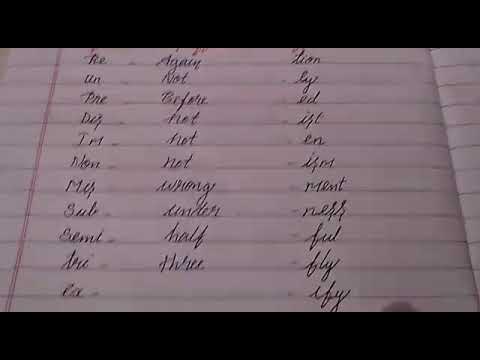 Re - Again - tion
Un - Not - ly
Pre - Before - ed
Dis - not - ist
Im - not - en
Non - not - ism
Mis - wrong - ment
Sub - under - ness
Semi - half - ful
tri - three - fly
ex - - ify